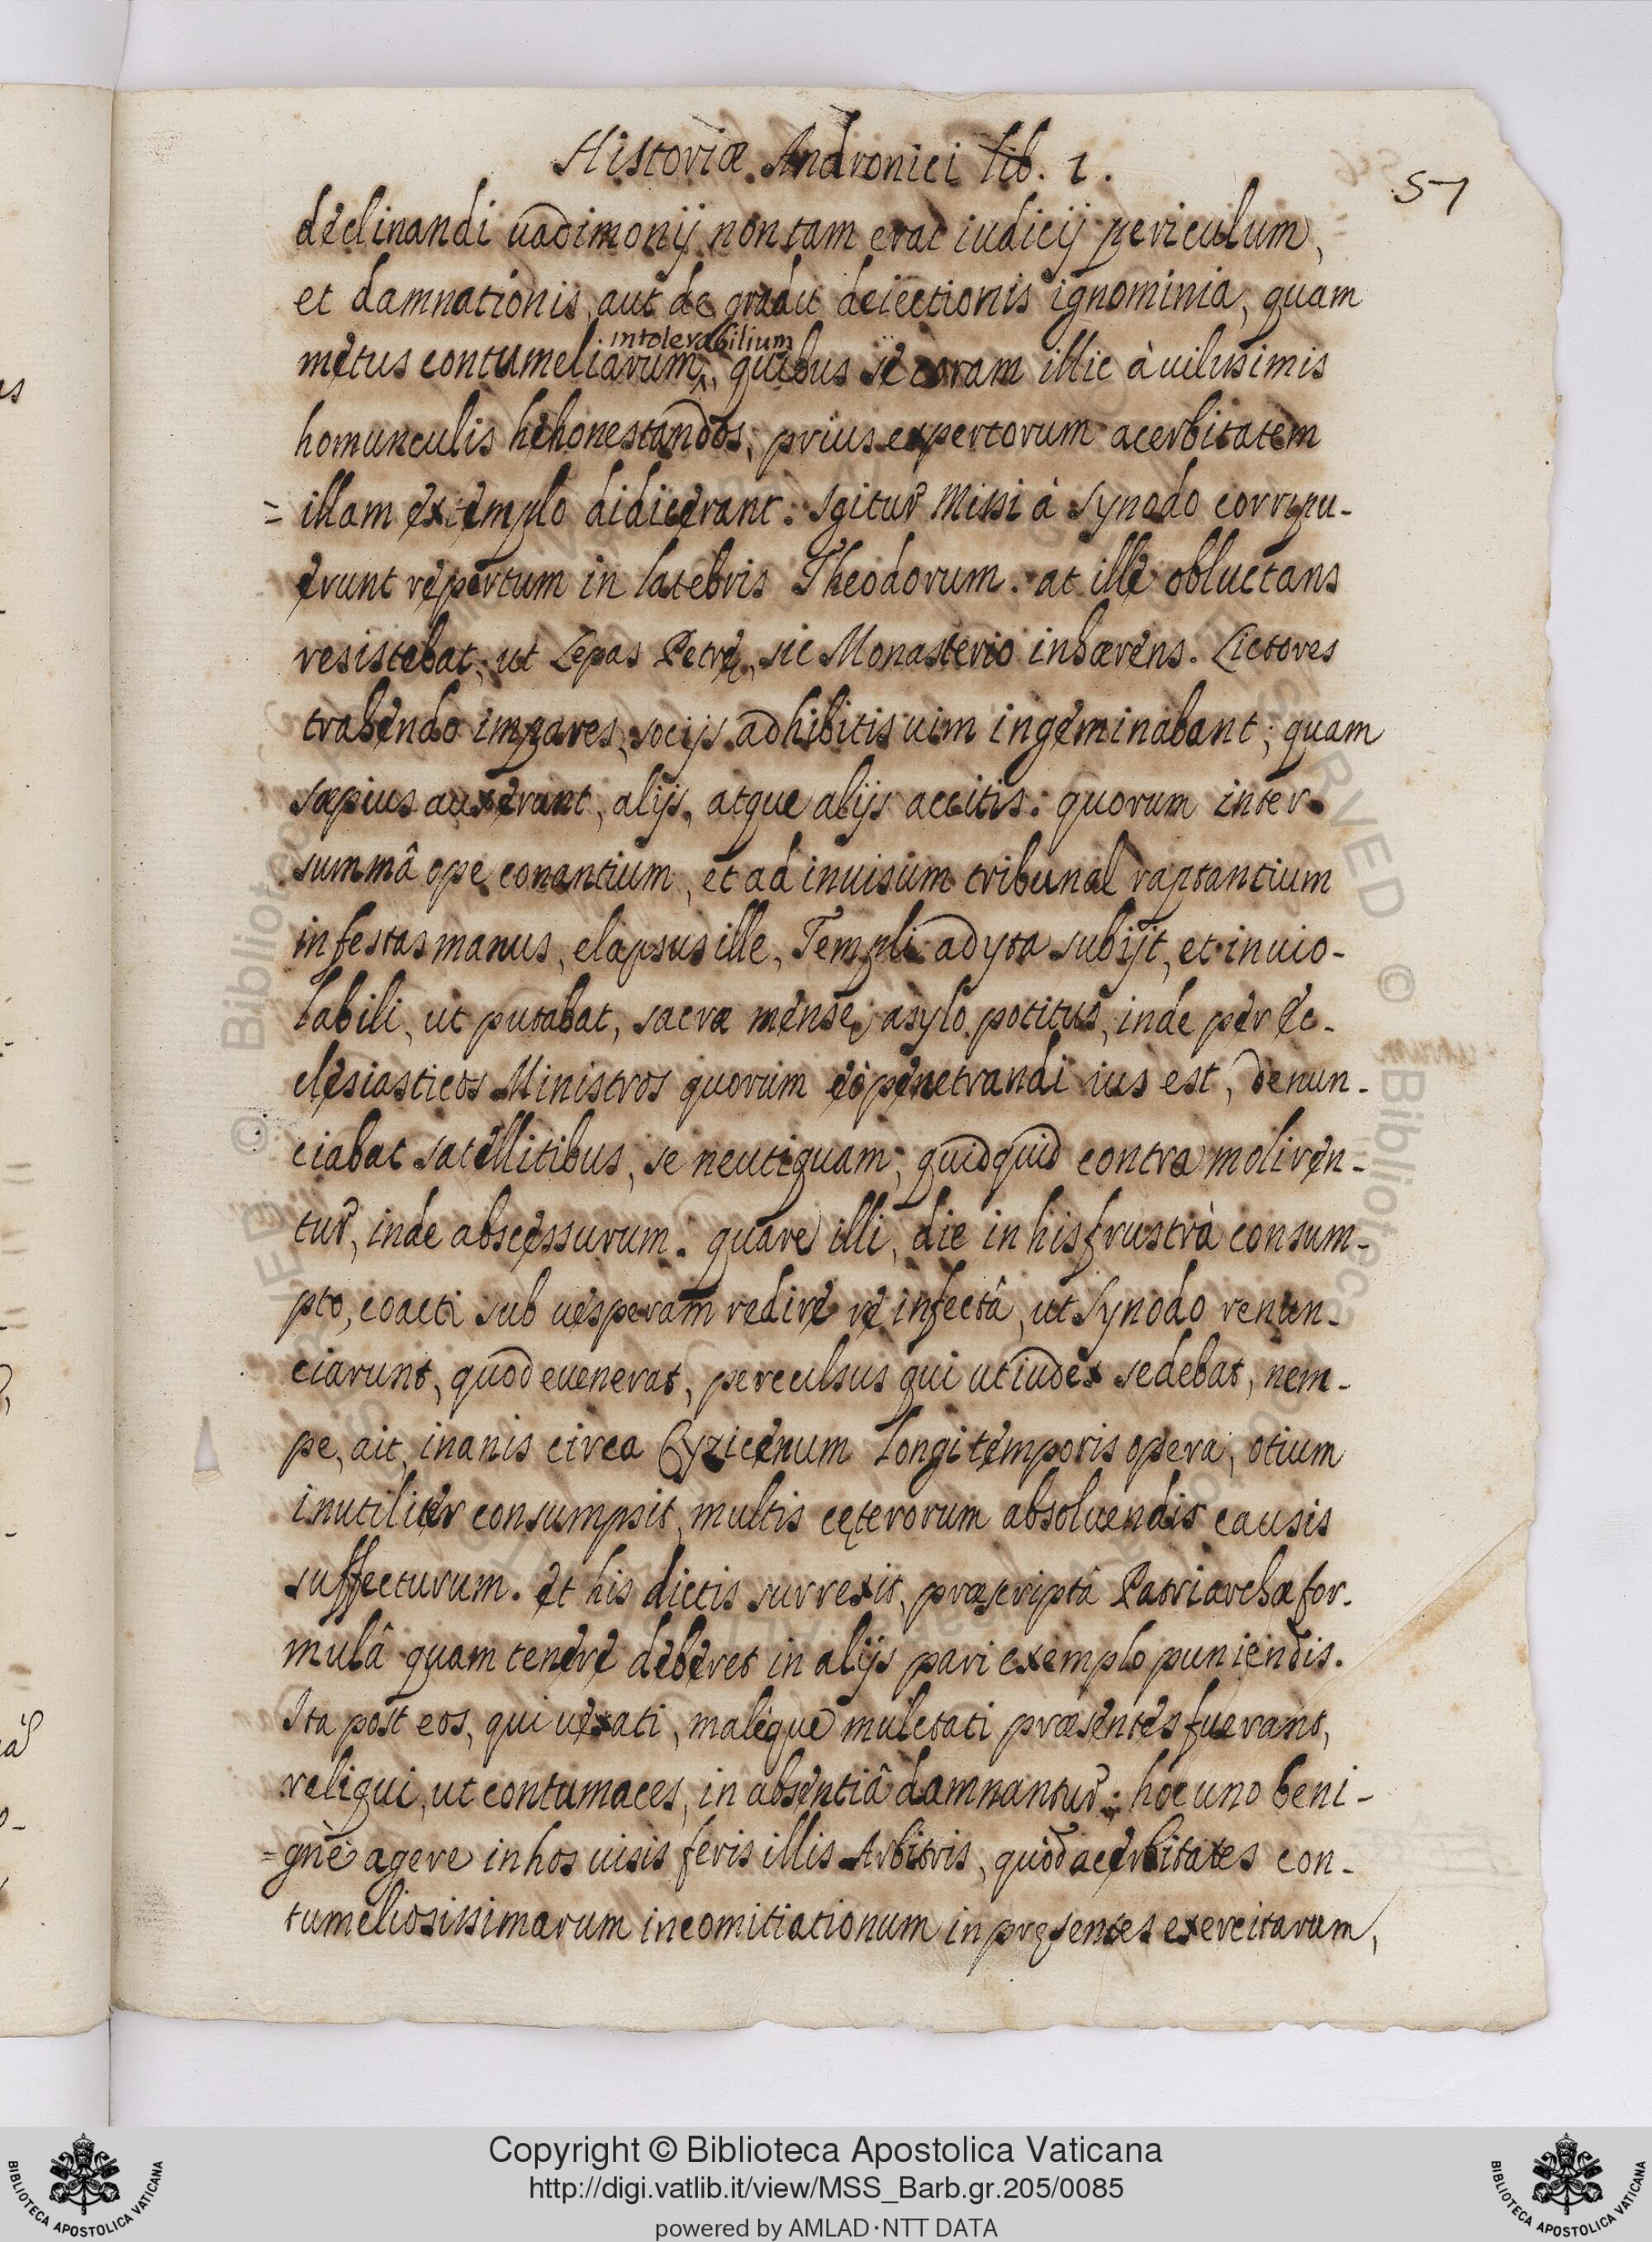 Historiæ Andronici lib. 1.
57
declinandi uadimonij non tam erat iudicij periculum,
et damnationis, aut de gradu deiectionis ignominia, quam
metus contumeliarum, intolerabilium quibus se coram illic à uilissimis
homunculis hehonestandos, prius expertorum acerbitatem
= illam extemplo didicerant. Igitur Missi à Synodo corripu-
erunt repertum in latebris Theodorum. at ille obluctans
resistebat, ut Lepas Petrę, sic Monasterio inhærens. Lictores
trahendo impares, socijs adhibitis uim ingeminabant; quam
sæpius auxerant, alijs, atque alijs accitis: quorum inter
summâ ope conantium, et ad inuisum tribunal raptantium
infestas manus, elapsus ille, Templi adyta subijt, et inuio-
labili, ut putabat, sacræ mensę, asylo potitus, inde per Ec-
clesiasticos Ministros quorum eò penetrandi ius est, denun-
ciabat satellitibus, se neutiquam, quidquid contra moliren-
tur, inde abscessurum. quare illi, die in his frustrà consum-
pto, coacti sub uesperam redire re infectâ, ut Synodo renun-
ciarunt, quod euenerat, perculsus qui ut iudex sedebat, nem-
pe, ait, inanis circa Cyzicenum longi temporis opera, otium
inutiliter consumpsit, multis cęterorum absoluendis causis
suffecturum. Et his dictis surrexit, præscriptâ Patriarchæ for-
mulâ quam tenere deberet in alijs pari exemplo puniendis.
Ita post eos, qui uexati, maleque mulctati præsentes fuerant,
reliqui, ut contumaces, in absentiâ damnantur; hoc uno beni-
= gnè agere in hos uisis feris illis Arbitris, quod acerbitates con-
tumeliosissimarum incomitiationum in pręsentes exercitarum,
Copyright © Biblioteca Apostolica Vaticana
http://digi.vatlib.it/view/MSS_Barb.gr.205/0085
powered by AMLAD·NTT DATA
BIBLIOTECA APOSTOLICA VATICANA
BIBLIOTECA APOSTOLICA VATICANA